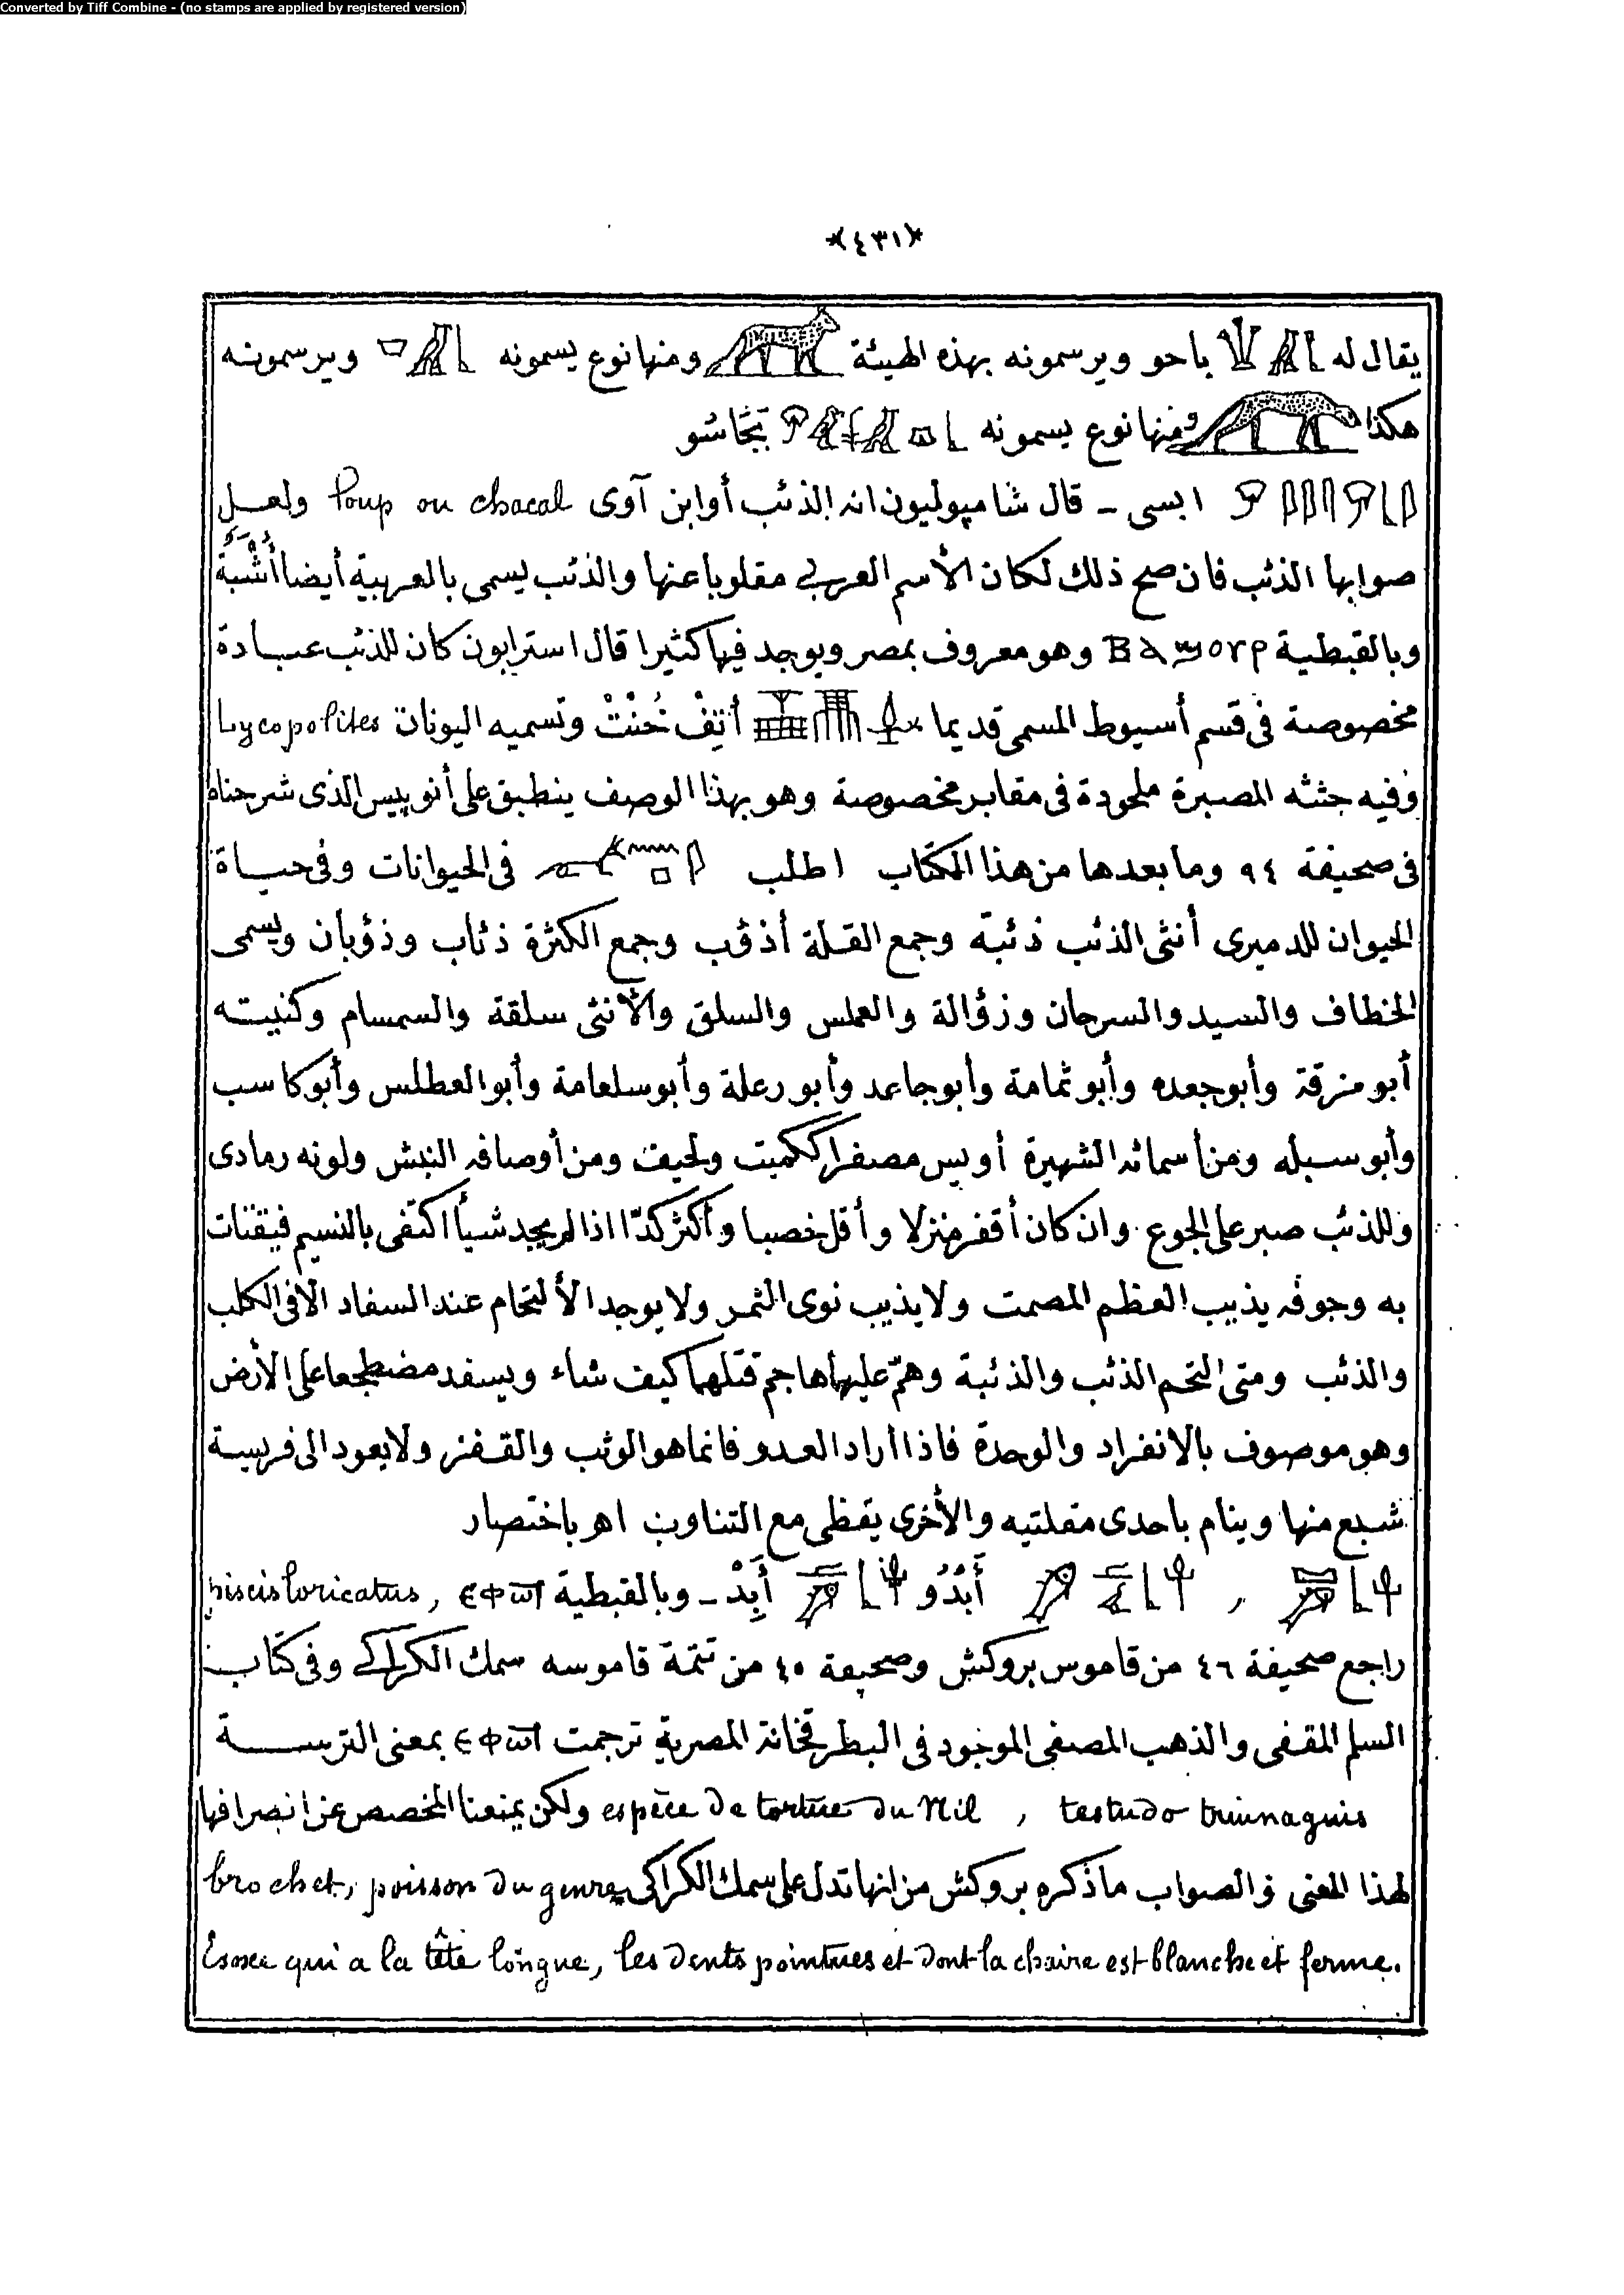 Converted by Tiff Combine - (no stamps are applied by registered version)
*(٤٣١)*
يقال له باحو ويرسمونه بهذه الهيئة ومنها نوع يسمونه ويرسمونه
هكذا ومنها نوع يسمونه
ابسى - قال شامپوليون انه الذئب أو ابن آوى loup ou chacal ولعل
صوابها الذئب فان صح ذلك لكان الأسم العربي مقلوبا عنها والذئب يسمى بالعربية أيضا أُشْبَة
وبالقبطية ⲃⲁϣⲟⲣ وهو معروف بمصر ويوجد فيها كثيرا قال استرابون كان للذئب عبادة
مخصوصة فى قسم أسيوط المسمى قديما أتِفْ خُنْتْ وتسميه اليونان Lycopolites
وفيه جثته المصبرة ملحودة فى مقابر مخصوصة وهو بهذا الوصف ينطبق على أنوبيس الذى شرحناه
فى صحيفة ٩٤ وما بعدها من هذا الكتاب اطلب فى الحيوانات وفى حياة
الحيوان للدميرى أنثى الذئب ذئبة وجمع القلة أذؤب وجمع الكثرة ذئاب وذؤبان ويسمى
الخطاف والسيد والسرحان وزؤالة والعملس والسلق والأنثى سلقة والسمسام وكنيته
أبو مزقة وأبو جعده وأبو ثمامة وأبو جاعد وأبو رعلة وأبو سلعامة وأبو العطلس وأبو كاسب
وأبو سبله ومن أسمائه الشهيرة أويس مصغرا ككميت ولحيف ومن أوصافه النبش ولونه رمادى
وللذئب صبر على الجوع وان كان أقفر منزلا وأقل خصبا وأكثر كدّا اذا لم يجد شيأ اكتفى بالنسيم فيقتات
به وجوفه يذيب العظم المصمت ولا يذيب نوى الثمر ولا يوجد الألتحام عند السفاد الا فى الكلب
والذئب ومتى التحم الذئب والذئبة وهمّ عليها هاجم قتلهما كيف شاء ويسفد مضطجعا على الأرض
وهو موصوف بالانفراد والوحدة فاذا أراد العدو فانما هو الوثب والقفز ولا يعود الى فريسة
شبع منها وينام باحدى مقلتيه والأخرى يقظى مع التناوب اهر باختصار
, أَبْدُو أَبِدْ - وبالقبطية ⲉⲫⲱⲧ , piscis loricatus
راجع صحيفة ٤٦ من قاموس بروكش وصحيفة ٤٠ من تتمة قاموسه سمك الكراكى وفى كتاب
السلم المقفى والذهب المصفى الموجود فى البطرقخانة المصرية ترجمت ⲉⲫⲱⲧ بمعنى الترسة
testudo triunaguis , espèce de tortue du Nil ولكن يمنعنا المخصص عن انصرافها
لهذا المعنى فالصواب ما ذكره بروكش من انها تدل على سمك الكراكى brochet, poisson du genre
Esoxe qui a la tête longue, les dents pointues et dont la chaire est blanche et ferme.